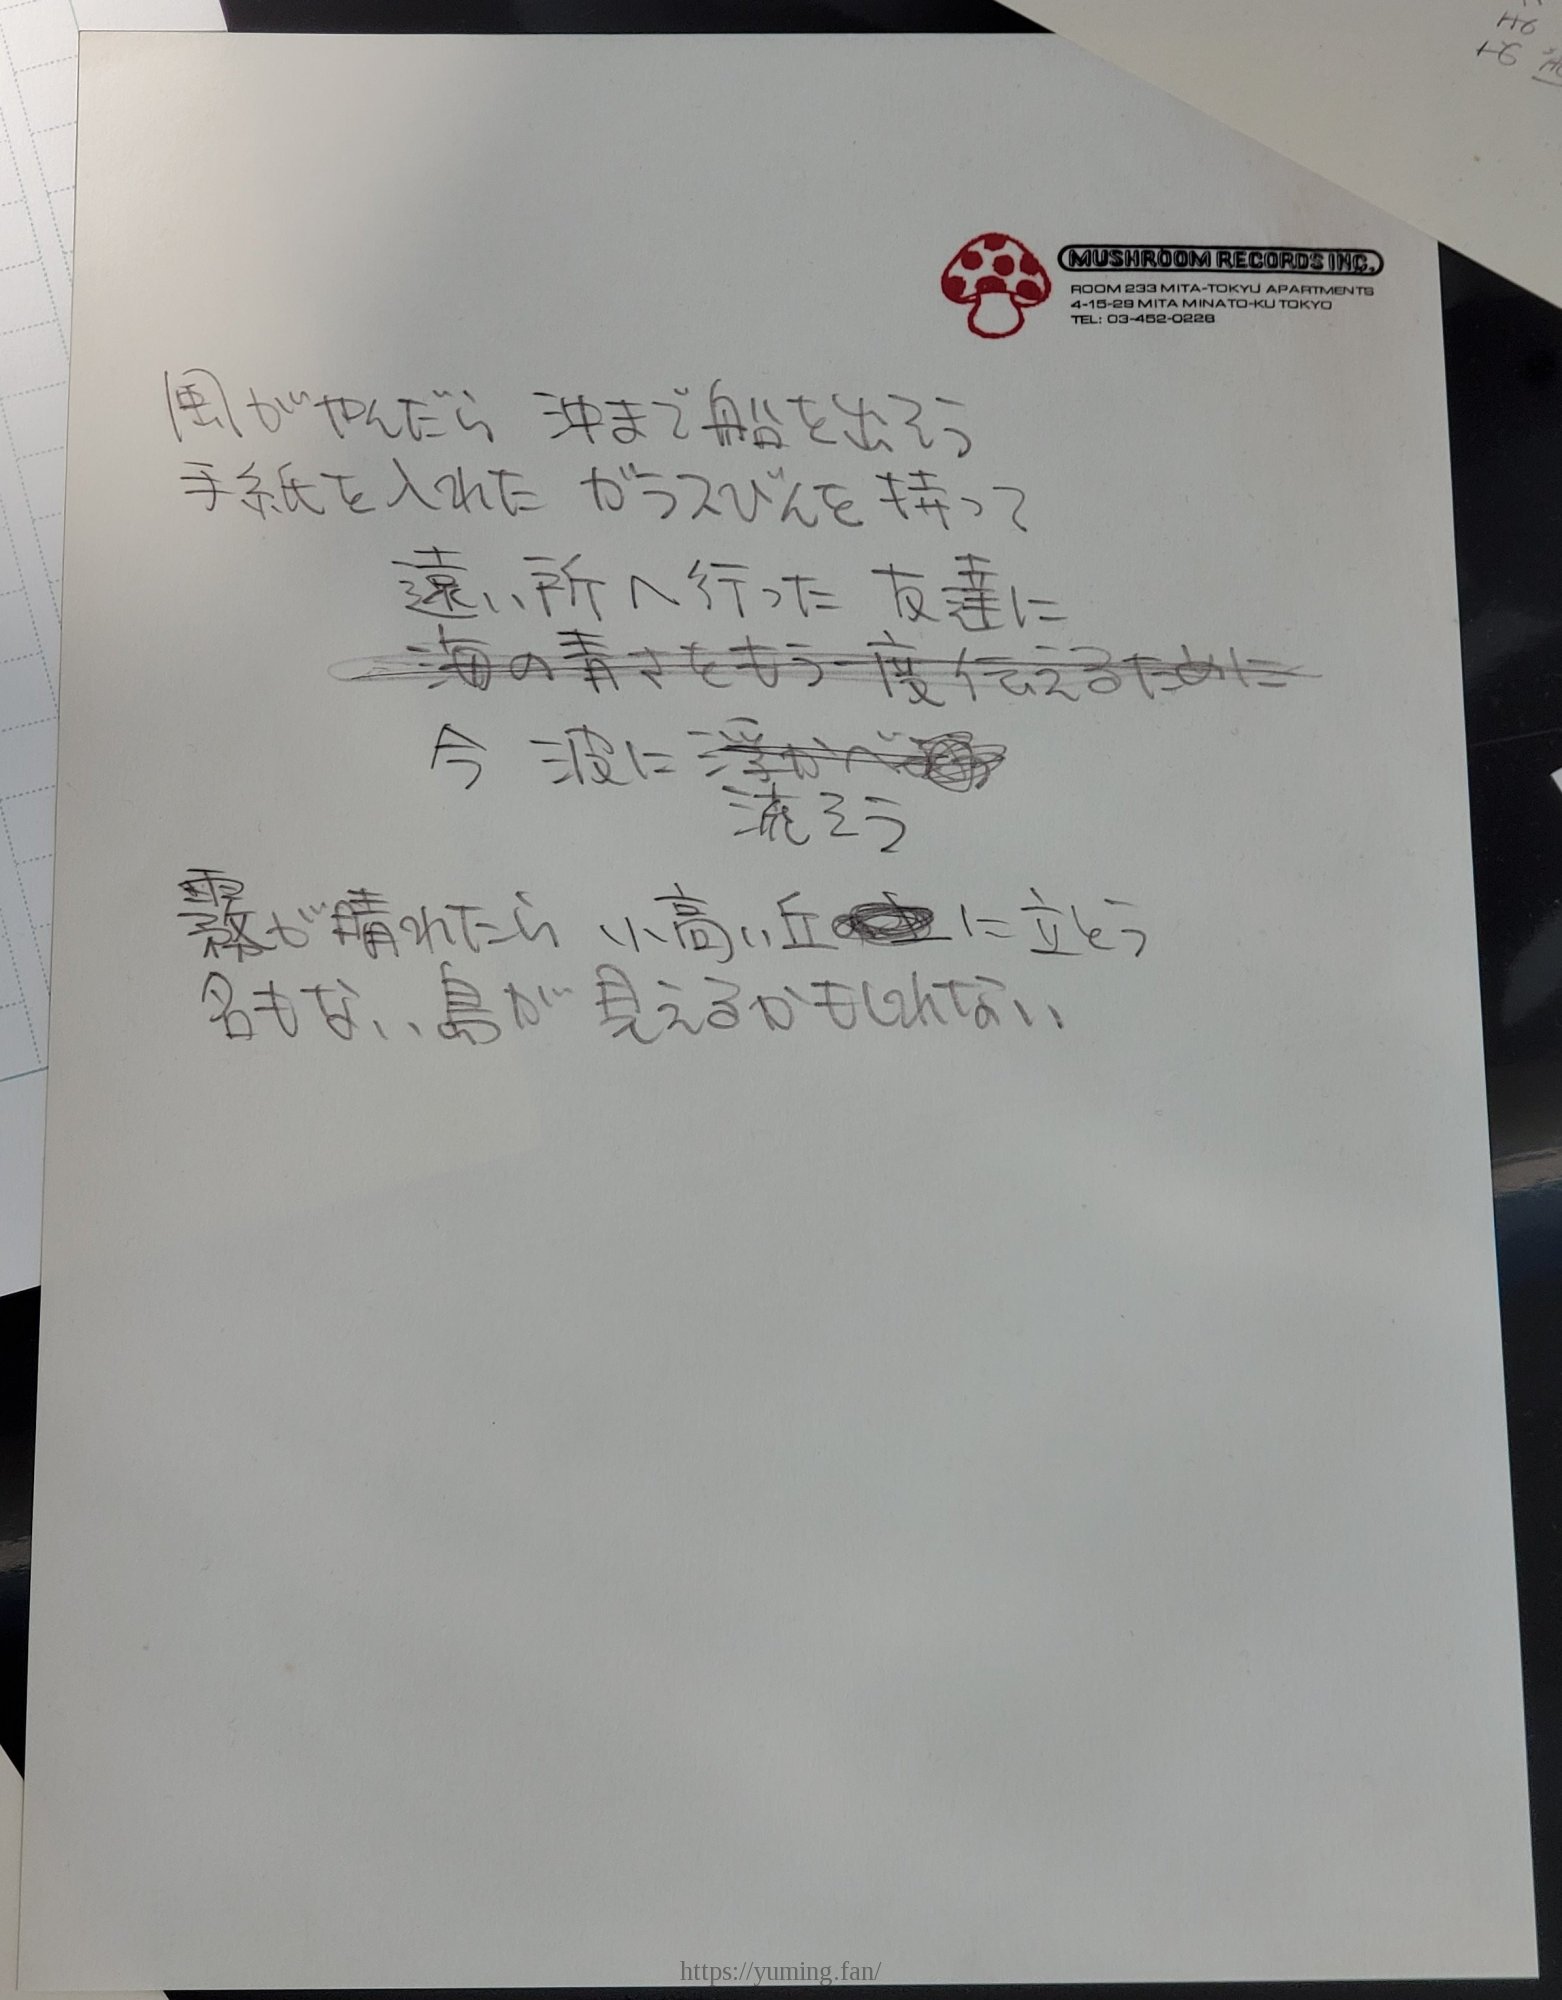 MUSHROOM RECORDS INC.
ROOM 233 MITA-TOKYU APARTMENTS
4-15-29 MITA MINATO-KU TOKYO
TEL: 03-452-0228
風がやんだら 沖まで船を出そう
手紙を入れた ガラスびんを持って
遠い所へ行った 友達に
海の青さをもう一度伝えるために
今 波に 浮かべ
流そう
霧が晴れたら 小高い丘に立とう
名もない島が見えるかもしれない
https://yuming.fan/